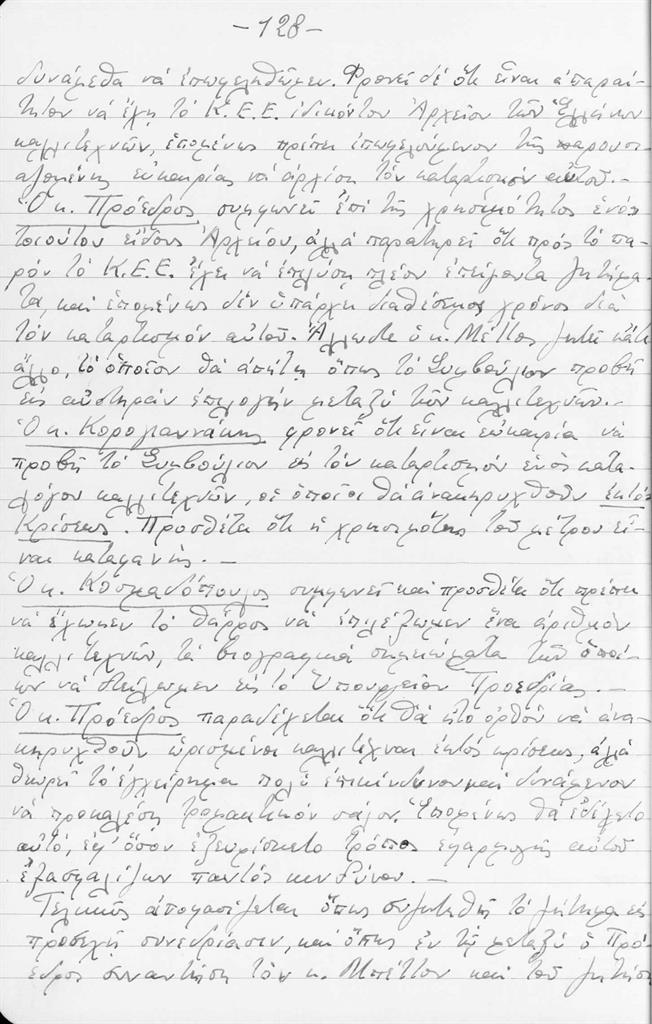 -128-
δυνάμεθα νά ἐπωφεληθῶμεν. Φρονεῖ δέ ὅτι εἶναι ἀπαραί-
τητον νά ἔχῃ τό Κ.Ε.Ε. εἰδικόν Ἀρχεῖον τῶν Ἑλλήνων
καλλιτεχνῶν, ἑπομένως πρέπει ἐπωφελούμενον τῆς παρουσι-
αζομένης εὐκαιρίας νά ἀρχίσῃ τόν καταρτισμόν αὐτοῦ.-
Ὁ κ. Πρόεδρος συμφωνεῖ ἐπί τῆς χρησιμότητος ἑνός
τοιούτου εἴδους Ἀρχείου, ἀλλά παρατηρεῖ ὅτι πρός τό πα-
ρόν τό Κ.Ε.Ε. ἔχει νά ἐπιλύσῃ πλέον ἐπείγοντα ζητήμα-
τα, καί ἑπομένως δέν ὑπάρχει διαθέσιμος χρόνος διά
τόν καταρτισμόν αὐτοῦ. Ἄλλωστε ὁ κ. Μπέττος ζητεῖ κάτι
ἄλλο, τό ὁποῖον θά ἀπῄτει ὅπως τό Συμβούλιον προβῇ
εἰς αὐστηράν ἐπιλογήν μεταξύ τῶν καλλιτεχνῶν.-
Ὁ κ. Κορογιαννάκης φρονεῖ ὅτι εἶναι εὐκαιρία νά
προβῇ τό Συμβούλιον εἰς τόν καταρτισμόν ἑνός κατα-
λόγου καλλιτεχνῶν, οἱ ὁποῖοι θά ἀνακηρυχθοῦν ἐκτός
Κρίσεως. Προσθέτει ὅτι ἡ χρησιμότης τοῦ μέτρου εἶ-
ναι καταφανής.-
Ὁ κ. Κοσμαδόπουλος συμφωνεῖ καί προσθέτει ὅτι πρέπει
νά ἔχωμεν τό θάρρος νά ἐπιλέξωμεν ἕνα ἀριθμόν
καλλιτεχνῶν, τά βιογραφικά σημειώματα τῶν ὁποί-
ων νά στείλωμεν εἰς τό Ὑπουργεῖον Προεδρίας.-
Ὁ κ. Πρόεδρος παραδέχεται ὅτι θά ἦτο ὀρθόν νά ἀνα-
κηρυχθοῦν ὡρισμένοι καλλιτέχναι ἐκτός κρίσεως, ἀλλά
θεωρεῖ τό ἐγχείρημα πολύ ἐπικίνδυνον καί δυνάμενον
νά προκαλέσῃ τρομακτικόν σάλον. Ἑπομένως θά ἐδέχετο
αὐτό, ἐφ' ὅσον ἐξευρίσκετο τρόπος ἐφαρμογῆς αὐτοῦ
ἐξασφαλίζων παντός κινδύνου.-
Τελικῶς ἀποφασίζεται ὅπως συζητηθῇ τό ζήτημα εἰς
προσεχῆ συνεδρίασιν, καί ὅπως ἐν τῷ μεταξύ ὁ Πρό-
εδρος συναντήσῃ τόν κ. Μπέττον καί τοῦ ζητήσῃ